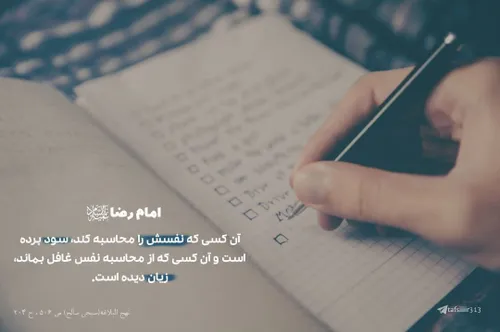 امام رضا
آن کسی که نفسش را محاسبه کند، سود برده
است و آن کسی که از محاسبه نفس غافل بماند،
زیان دیده است.
نهج البلاغه(صبحی صالح) ص ۵۰۶ ، ح ۲۰۳
tafsiir313